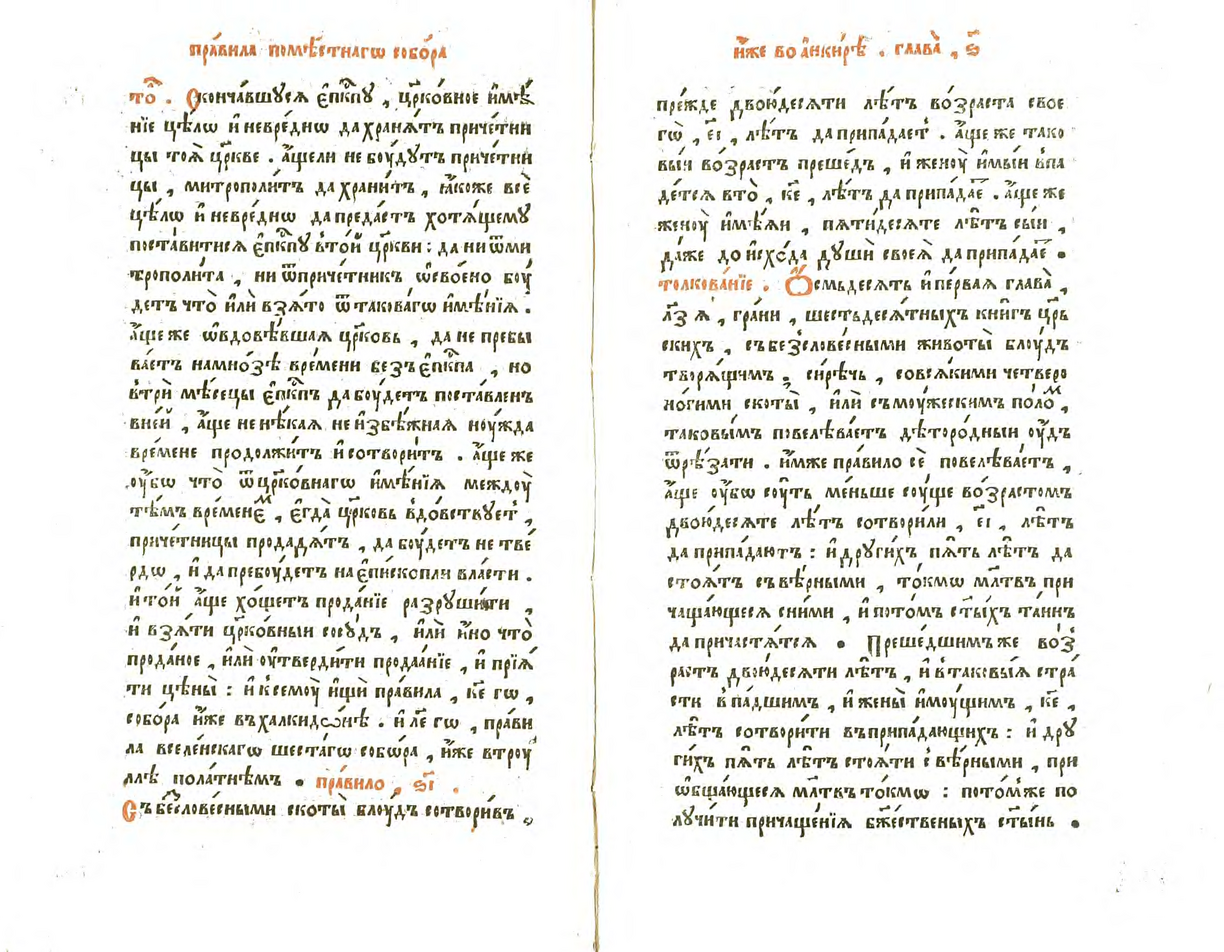 пра́вила помѣ́стнагѡ собо́ра
то̑ . Сконча́вшꙋсѧ є҆пкⷭ҇пꙋ , цр҃ко́вное и҆мѣ́
нїе цѣ́лѡ и҆ невре́днѡ да храни́тъ приче́тни
цы тоѧ̀ цр҃кве . а҆́щели не боу́дꙋтъ приче́тни
цы , митрополи́тъ да храни́тъ , ꙗ҆́коже всѐ
цѣ́лѡ и҆ невре́днѡ да преда́стъ хотѧ́щемꙋ
поста́витисѧ є҆пкⷭ҇пꙋ в то́й цр҃кви : да ни ѿ ми
трополи́та , ни ѿ приче́тникъ ѡ҆сво́ено боу́
детъ что̀ и҆лѝ взѧ́то ѿ таково́гѡ и҆мѣ́нїѧ .
а҆́ще же ѡ҆вдовѣ́вшаѧ цр҃ковь , да не пребы
ва́етъ на мно́зѣ вре́мени без̾ є҆пкⷭ҇па , но
в трѝ мѣ́сецы є҆пкⷭ҇пъ да боу́детъ поста́вленъ
в не́й , а҆́ще не нѣ́каѧ не и҆збѣ́жнаѧ ноу́жда
вре́мене продолжи́тъ и҆ сотвори́тъ . а҆́ще же
оу҆́бѡ что̀ ѿ цр҃ко́внагѡ и҆мѣ́нїѧ междоу̀
тѣ́мъ вре́менеⷨ , є҆гда̀ цр҃ковь вдо́вствꙋетⸯ ,
приче́тницы продадѧ́тъ , да боу́детъ не тве́
рдѡ , и҆ да пребоу́детъ на є҆пи́скопли вла́сти .
и҆ то́й а҆́ще хо́щетъ прода́нїе разрꙋши́ти ,
и҆ взѧ́ти цр҃ко́вныи сосꙋ́дъ , и҆лѝ и҆́но что̀
прода́ное , и҆лѝ оу҆тверди́ти прода́нїе , и҆ прїѧ́
ти цѣ́ны̀ : и҆ к семоу̀ и҆щѝ пра́вила , к҃е гѡ ,
собо́ра и҆́же в халкидо́нѣ . и҆ л҃е гѡ , пра́ви
ла вселе́нскагѡ шеста́гѡ собо́ра , и҆́же в троу́
ллѣ пола́тнѣмъ . пра́вило , ѕ҃і .
Съ бесслове́сными скоты̀ блоу́дъ сотвори́въ ,
и҆́же во а҆нки́рѣ . глава̀ , ѕ҃
пре́жде двою́десѧти лѣ́тъ во́зраста свое
гѡ̀ , є҃і , лѣ́тъ да припа́даетⸯ . а҆́ще же тако
вы́и во́зрастъ преше́дъ , и҆ женоу̀ и҆мы́и впа
де́тсѧ в то̀ , к҃е , лѣ́тъ да припа́даеⷮ . а҆́ще же
женоу̀ и҆мѣ́ѧи , пѧти́десѧте лѣ́тъ сы́и ,
да́же до и҆схо́да дꙋшѝ своеѧ̀ да припа́даеⷮ .
толкова́нїе . Ѻ҆смьдесѧ́тъ и҆ пе́рваѧ глава̀ ,
л҃з ѧ , гра́ни , шестьдесѧ́тныхъ кни́гъ цр҃ь
скихъ , съ безслове́сными живо́ты̀ блоу́дъ
творѧ́щимъ , си́рѣчь , со всѧ́кими четверо
но́гими скоты̀ , и҆лѝ съ моу́жескимъ по́лоⷨ ,
таковы́мъ повелѣва́етъ дѣторо́дныи оу҆́дъ
ѿрѣ́зати . и҆́мже пра́вило сѐ повелѣва́етъ ,
а҆́ще оу҆́бѡ соу́ть ме́ньше соу́ще во́зрастомъ
двою́десѧте лѣ́тъ сотвори́ли , є҃і , лѣ́тъ
да припа́даютъ : и҆ дрꙋги́хъ пѧ́ть лѣ́тъ да
стоѧ́тъ съ вѣ́рными , то́кмѡ мл҃твъ при
чаща́ющесѧ с ни́ми , и҆ пото́мъ ст҃ы́хъ та́инъ
да причастѧ́тсѧ . Преше́дшимъ же во́з
растъ двою́десѧти лѣ́тъ , и҆ в таковы́ѧ стра́
сти впа́дшимъ , и҆ жены̀ и҆моу́щимъ , к҃е ,
лѣ́тъ сотвори́ти в припа́дающихъ : и҆ дрꙋ
ги́хъ пѧ́ть лѣ́тъ стоѧ́ти с вѣ́рными , при
ѡ҆бща́ющесѧ мл҃твъ то́кмѡ : пото́мже по
лꙋчи́ти причаще́нїѧ бж҃е́ственыхъ ст҃ы́нь .